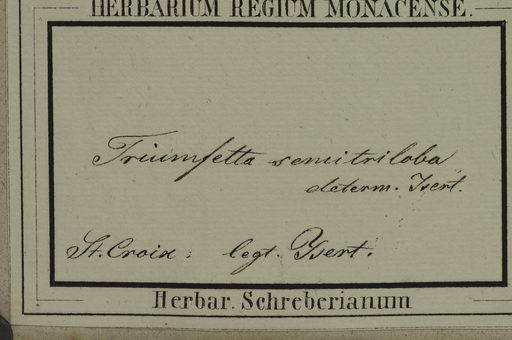 HERBARIUM REGIUM MONACENSE.
Triumfetta semitriloba
determ. Isert.
St. Croix: legt. Ysert.
Herbar. Schreberianum